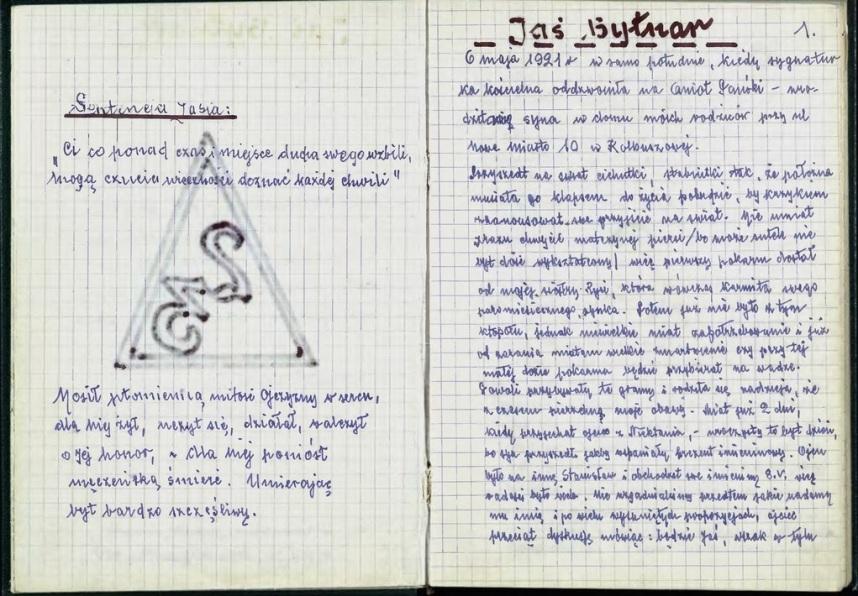 Sentencja Jasia:
"Ci co ponad czas i miejsce ducha swego wzbili,
mogą czucia wieczności doznać każdej chwili"
Nosił płomienną miłość Ojczyzny w sercu,
dla Niej żył, uczył się, działał, walczył
o Jej honor, - dla Niej poniósł
męczeńską śmierć. Umierając
był bardzo szczęśliwy.
Jaś Bytnar
1.
6 maja 1921 r w samo południe, kiedy sygnatur-
ka kościelna oddzwoniła na Anioł Pański - uro-
dziłam syna w domu moich rodziców przy ul
Nowe miasto 10 w Kolbuszowej.
Przyszedł na świat cichutki, słabiutki tak, że położna
musiała go klapsem do życia pobudzić, by krzykiem
zaanonsował swe przyjście na świat. Nie umiał
zaraz chwycić matczynej piersi /bo może sutek nie
był dość wykształcony/ więc pierwszy pokarm dostał
od mojej siostry, która wówczas karmiła swego
paromiesięcznego synka. Potem już nie było z tym
kłopotu, jednak niewielkie miał zapotrzebowanie i już
od zarania miałam wielkie zmartwienie czy przy tej
małej dozie pokarmu będzie przybierał na wadze.
Powoli przybywały te gramy i rodziła się nadzieja, że
z czasem moje obawy. Miał już 2 dni,
kiedy przyjechał ojciec z - uroczysty to był dzień,
bo syn przyszedł jakby wspaniały prezent imieninowy. Ojcu
było na imię Stanisław i obchodził swe imieniny 8.V. więc
radości było wiele. Nie uzgadnialiśmy przedtem jakie nadamy
mu imię i po wielu wysuniętych propozycjach, ojciec
przeciął dyskusję mówiąc: będzie Jaś, wszak w tym